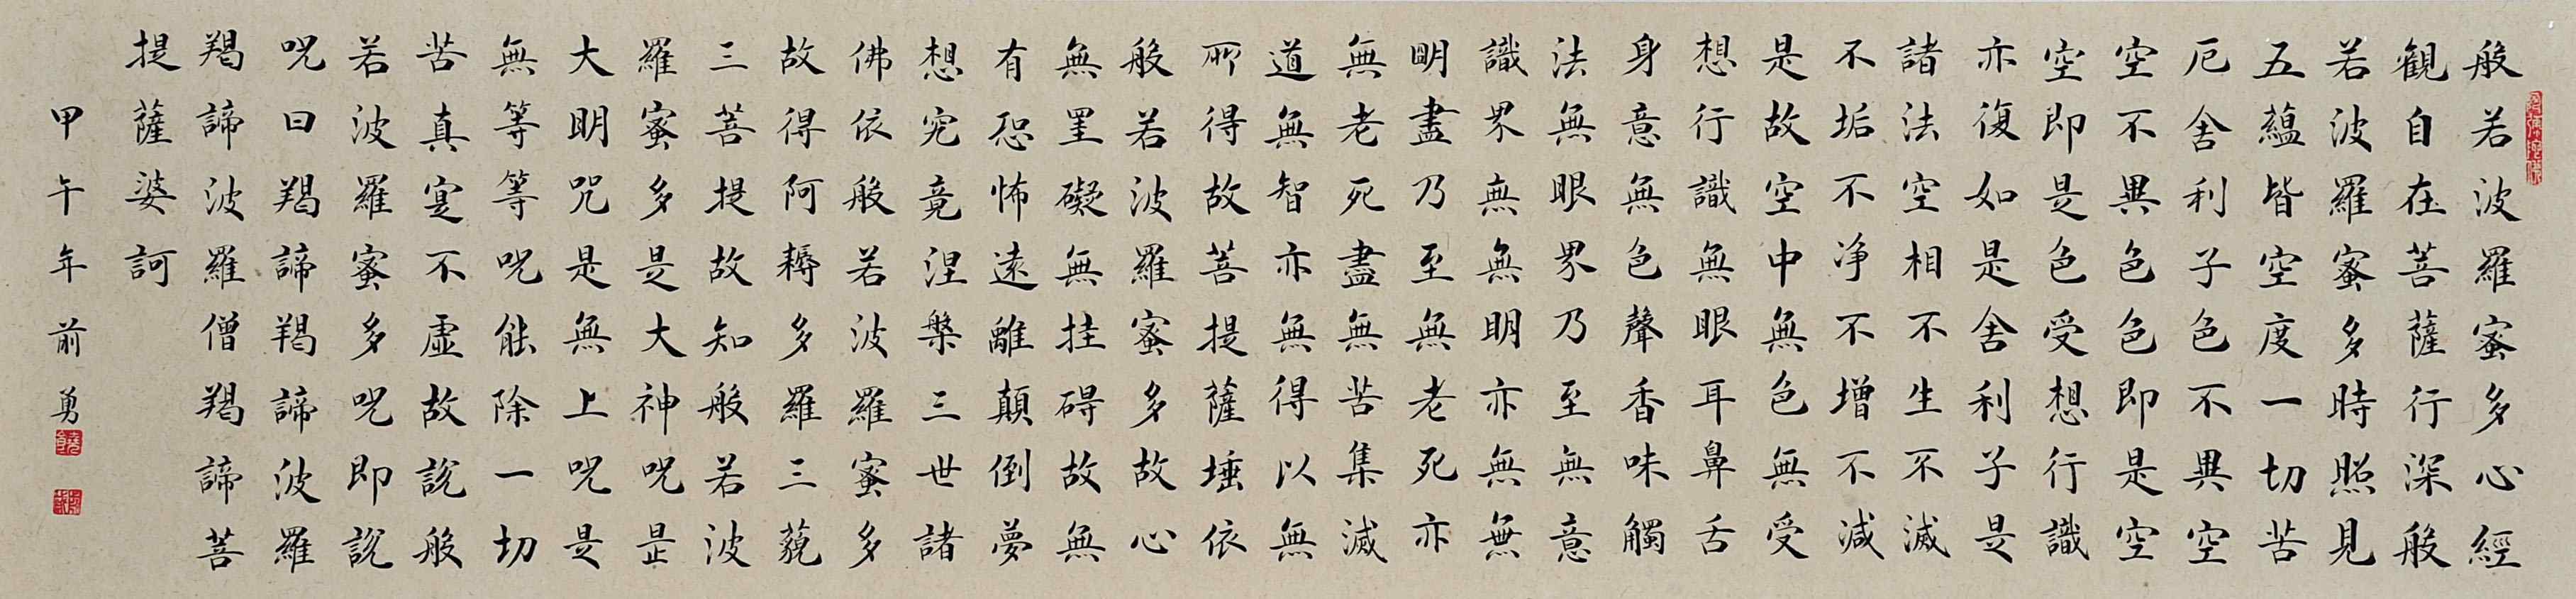 般若波羅蜜多心經
觀自在菩薩行深般
若波羅蜜多時照見
五蘊皆空度一切苦
厄舍利子色不異空
空不異色色即是空
空即是色受想行識
亦復如是舍利子是
諸法空相不生不滅
不垢不净不增不減
是故空中無色無受
想行識無眼耳鼻舌
身意無色聲香味觸
法無眼界乃至無意
識界無無明亦無無
明盡乃至無老死亦
無老死盡無苦集滅
道無智亦無得以無
所得故菩提薩埵依
般若波羅蜜多故心
無罣礙無挂碍故無
有恐怖遠離顛倒夢
想究竟涅槃三世諸
佛依般若波羅蜜多
故得阿耨多羅三藐
三菩提故知般若波
羅蜜多是大神咒是
大明咒是無上咒是
無等等咒能除一切
苦真寔不虛故說般
若波羅蜜多咒即說
咒曰羯諦羯諦波羅
羯諦波羅僧羯諦菩
提薩婆訶
甲午年前勇